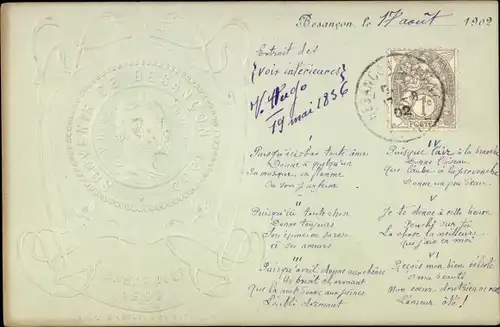 Besançon, le 17 août 1902
Extrait des
{Voix intérieures}
V. Hugo
19 mai 1836
SOUVENIR DE BESANÇON
1902
BESANÇON
02
1c
POSTES
I
Puisqu'ici bas toute âme
Donne à quelqu'un
Sa musique, sa flamme
Ou son parfum
II
Puisqu'ici toute chose
Donne toujours
Son épine ou sa rose
à ses amours
III
Puisqu'avril donne aux chênes
Un bruit charmant
Que la nuit donne aux peines
L'oubli dormant
IV
Puisque l'air à la branche
Donne l'oiseau
Que l'aube à la pervenche
Donne un peu d'eau
V
Je te donne à cette heure
Penché sur toi
La chose la meilleure
Que j'aie en moi
VI
Reçois mon bien céleste
O ma beauté
Mon cœur dont rien ne reste
L'amour ôté!